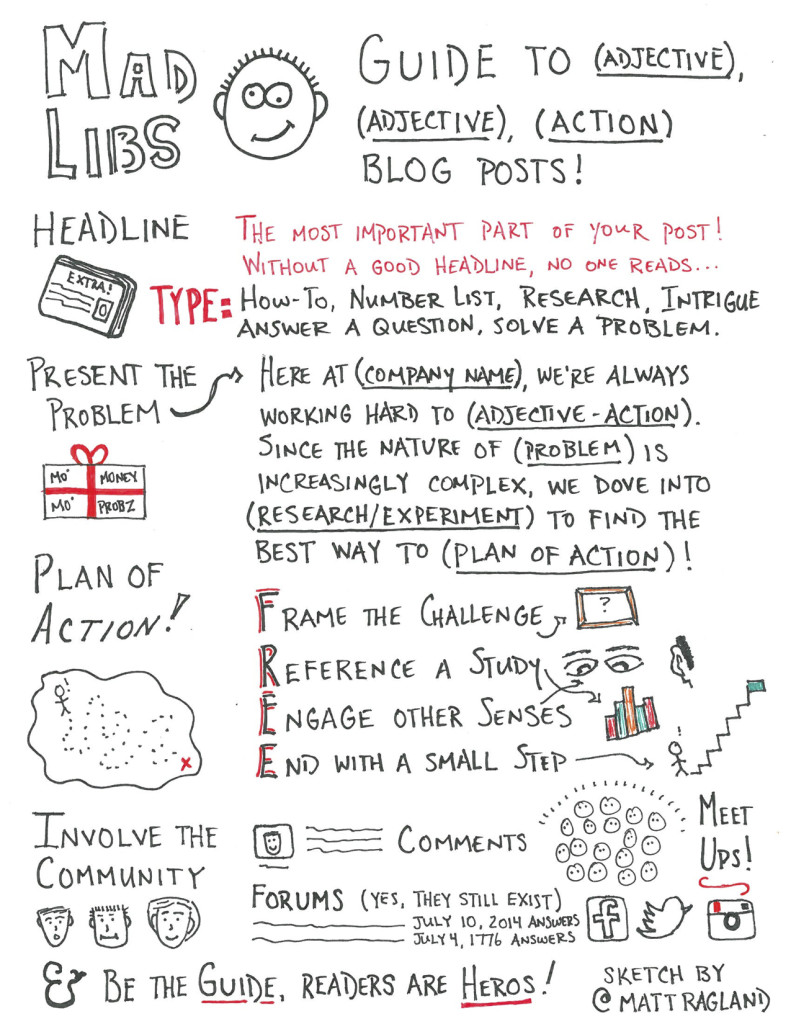 MAD
LIBS
GUIDE TO (ADJECTIVE),
(ADJECTIVE), (ACTION)
BLOG POSTS!
HEADLINE
EXTRA!
THE MOST IMPORTANT PART OF YOUR POST!
WITHOUT A GOOD HEADLINE, NO ONE READS...
TYPE: HOW-TO, NUMBER LIST, RESEARCH, INTRIGUE
ANSWER A QUESTION, SOLVE A PROBLEM.
PRESENT THE
PROBLEM
MO' MONEY
MO' PROBZ
HERE AT (COMPANY NAME), WE'RE ALWAYS
WORKING HARD TO (ADJECTIVE-ACTION).
SINCE THE NATURE OF (PROBLEM) IS
INCREASINGLY COMPLEX, WE DOVE INTO
(RESEARCH/EXPERIMENT) TO FIND THE
BEST WAY TO (PLAN OF ACTION)!
PLAN OF
ACTION!
X
FRAME THE CHALLENGE
?
REFERENCE A STUDY
ENGAGE OTHER SENSES
END WITH A SMALL STEP
INVOLVE THE
COMMUNITY
COMMENTS
FORUMS (YES, THEY STILL EXIST)
JULY 10, 2014 ANSWERS
JULY 4, 1776 ANSWERS
MEET
UPS!
f
& BE THE GUIDE, READERS ARE HEROS!
SKETCH BY
@MATTRAGLAND